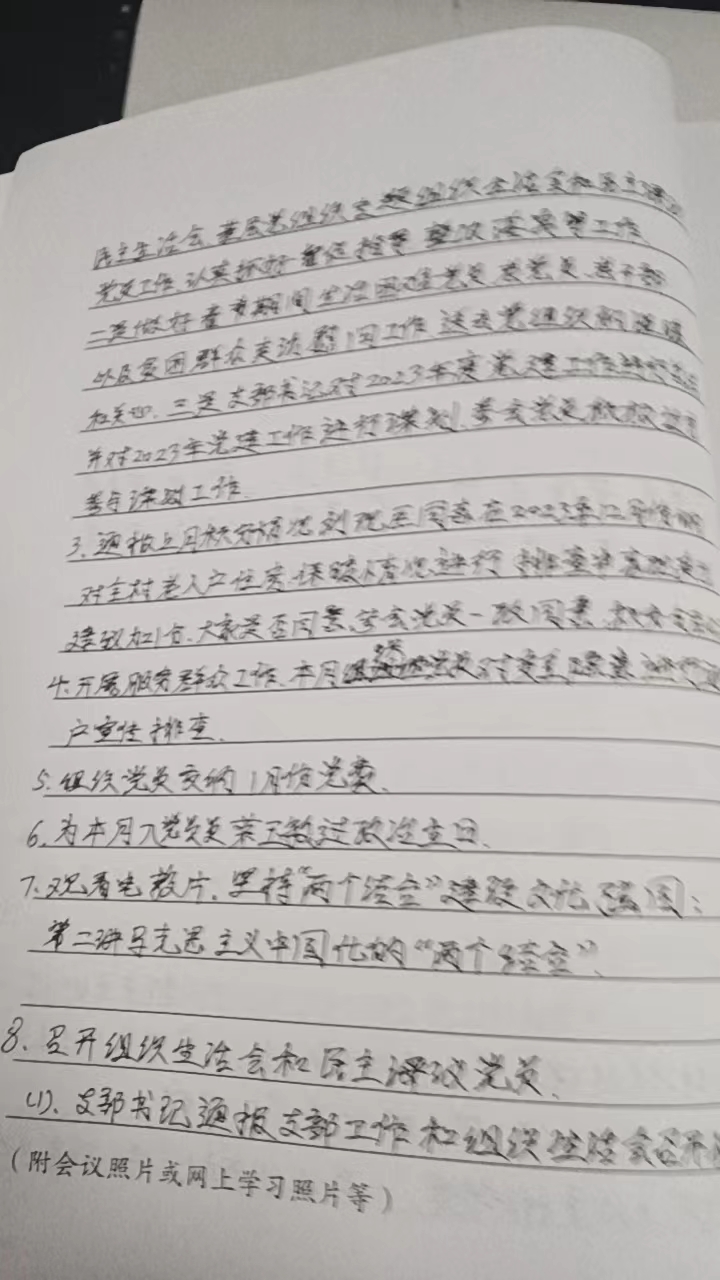 民主生活会、基层党组织专题组织生活会和民主评议
党员工作,认真抓好 整改落实等工作
二是做好春节期间生活困难党员、老党员、老干部
以及贫困群众走访慰问工作,送去党组织的温暖
和关心. 三是支部书记对2023年度党建工作进行
并对2023年党建工作进行谋划,
参与谋划工作.
3、通报上月积分情况 在2023年12月
对全村老人户住房 进行排查
建议加1分.大家是否同意,与会党员一致同意,
4.开展服务群众工作、本月组织党员对 进行
户宣传排查.
5.组织党员交纳1月份党费、
6、为本月入党党员 过政治生日、
7、观看电教片,坚持“两个结合”建设文化强国:
第二讲马克思主义中国化的“两个结合”、
8、召开组织生活会和民主评议党员、
(1)、支部书记通报支部工作和组织生活会召开
(附会议照片或网上学习照片等)